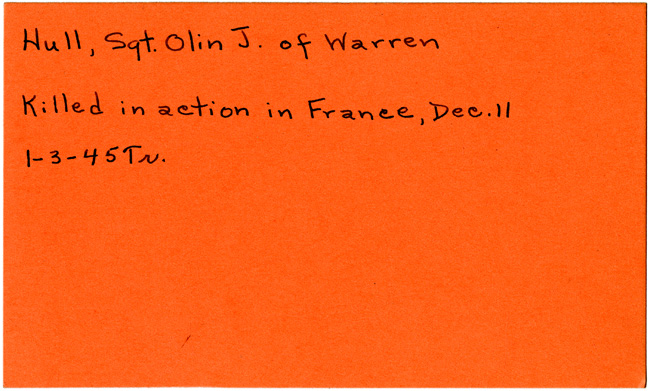 Hull, Sgt. Olin J. of Warren
Killed in action in France, Dec. 11
1-3-45 Tr.